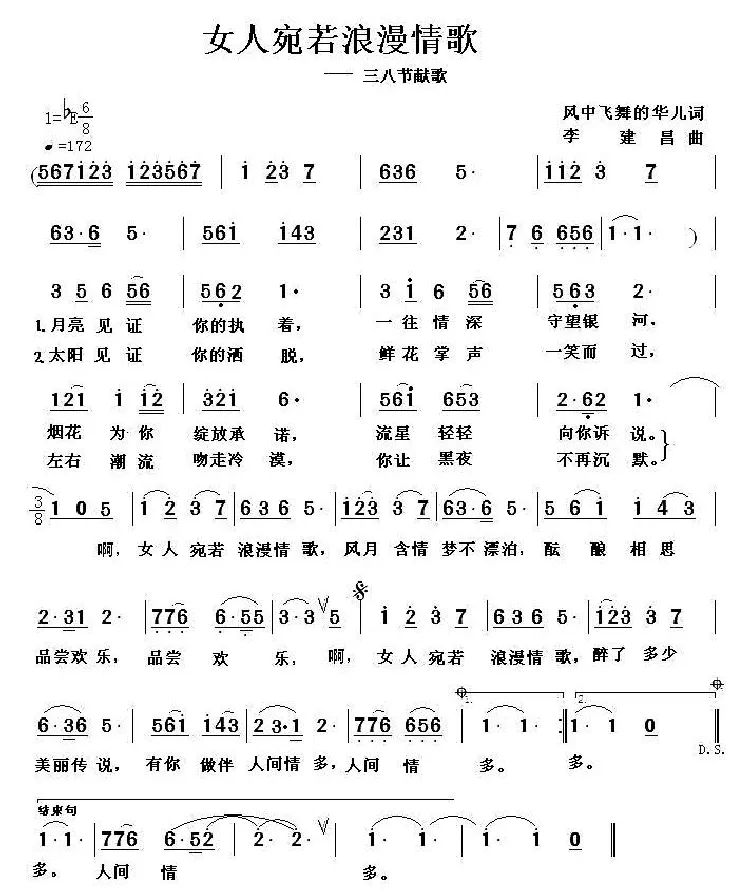 女人宛若浪漫情歌
—— 三八节献歌
1=♭E 6/8
风中飞舞的华儿词
♩=172
李 建 昌 曲
(567123 123567 | 1 23 7 | 636 5· | 1123 7
63·6 5· | 561 143 | 231 2· | 7 6 656 | 1·1· )
3 5 6 56 | 562 1· | 31 6 56 | 563 2·
1.月亮见证 你的执着， 一往情深 守望银 河。
2.太阳见证 你的洒 脱， 鲜花掌声 一笑而 过，
121 1 12 | 321 6· | 561 653 | 2·62 1·
烟花 为你 绽放承 诺， 流星 轻轻 向你诉 说。
左右 潮流 吻走冷 漠， 你让 黑夜 不再沉 默。
3/8 1 0 5 | 1 2 3 7 | 636 5· | 123 3 7 | 63·6 5· | 5 6 1 | 1 4 3
啊，女人 宛若 浪漫情 歌，风月 含情 梦不 漂泊，酝 酿 相思
2·31 2· | 776 6·55 | 3·3 5 | 1 2 3 7 | 636 5· | 123 3 7
品尝欢 乐， 品尝 欢 乐， 啊， 女人宛若 浪漫情歌，醉了 多少
6·36 5· | 561 143 | 23·1 2· | 776 656 | 1. 1·1· :‖ 2. 1·1 0 ‖
D.S.
美丽传 说，有你 做伴 人间情 多，人间 情 多。 多。
结束句
1·1· | 776 6·52 | 2· 2·2· | 1·1· | 1·1 0 ‖
多。 人间 情 多。